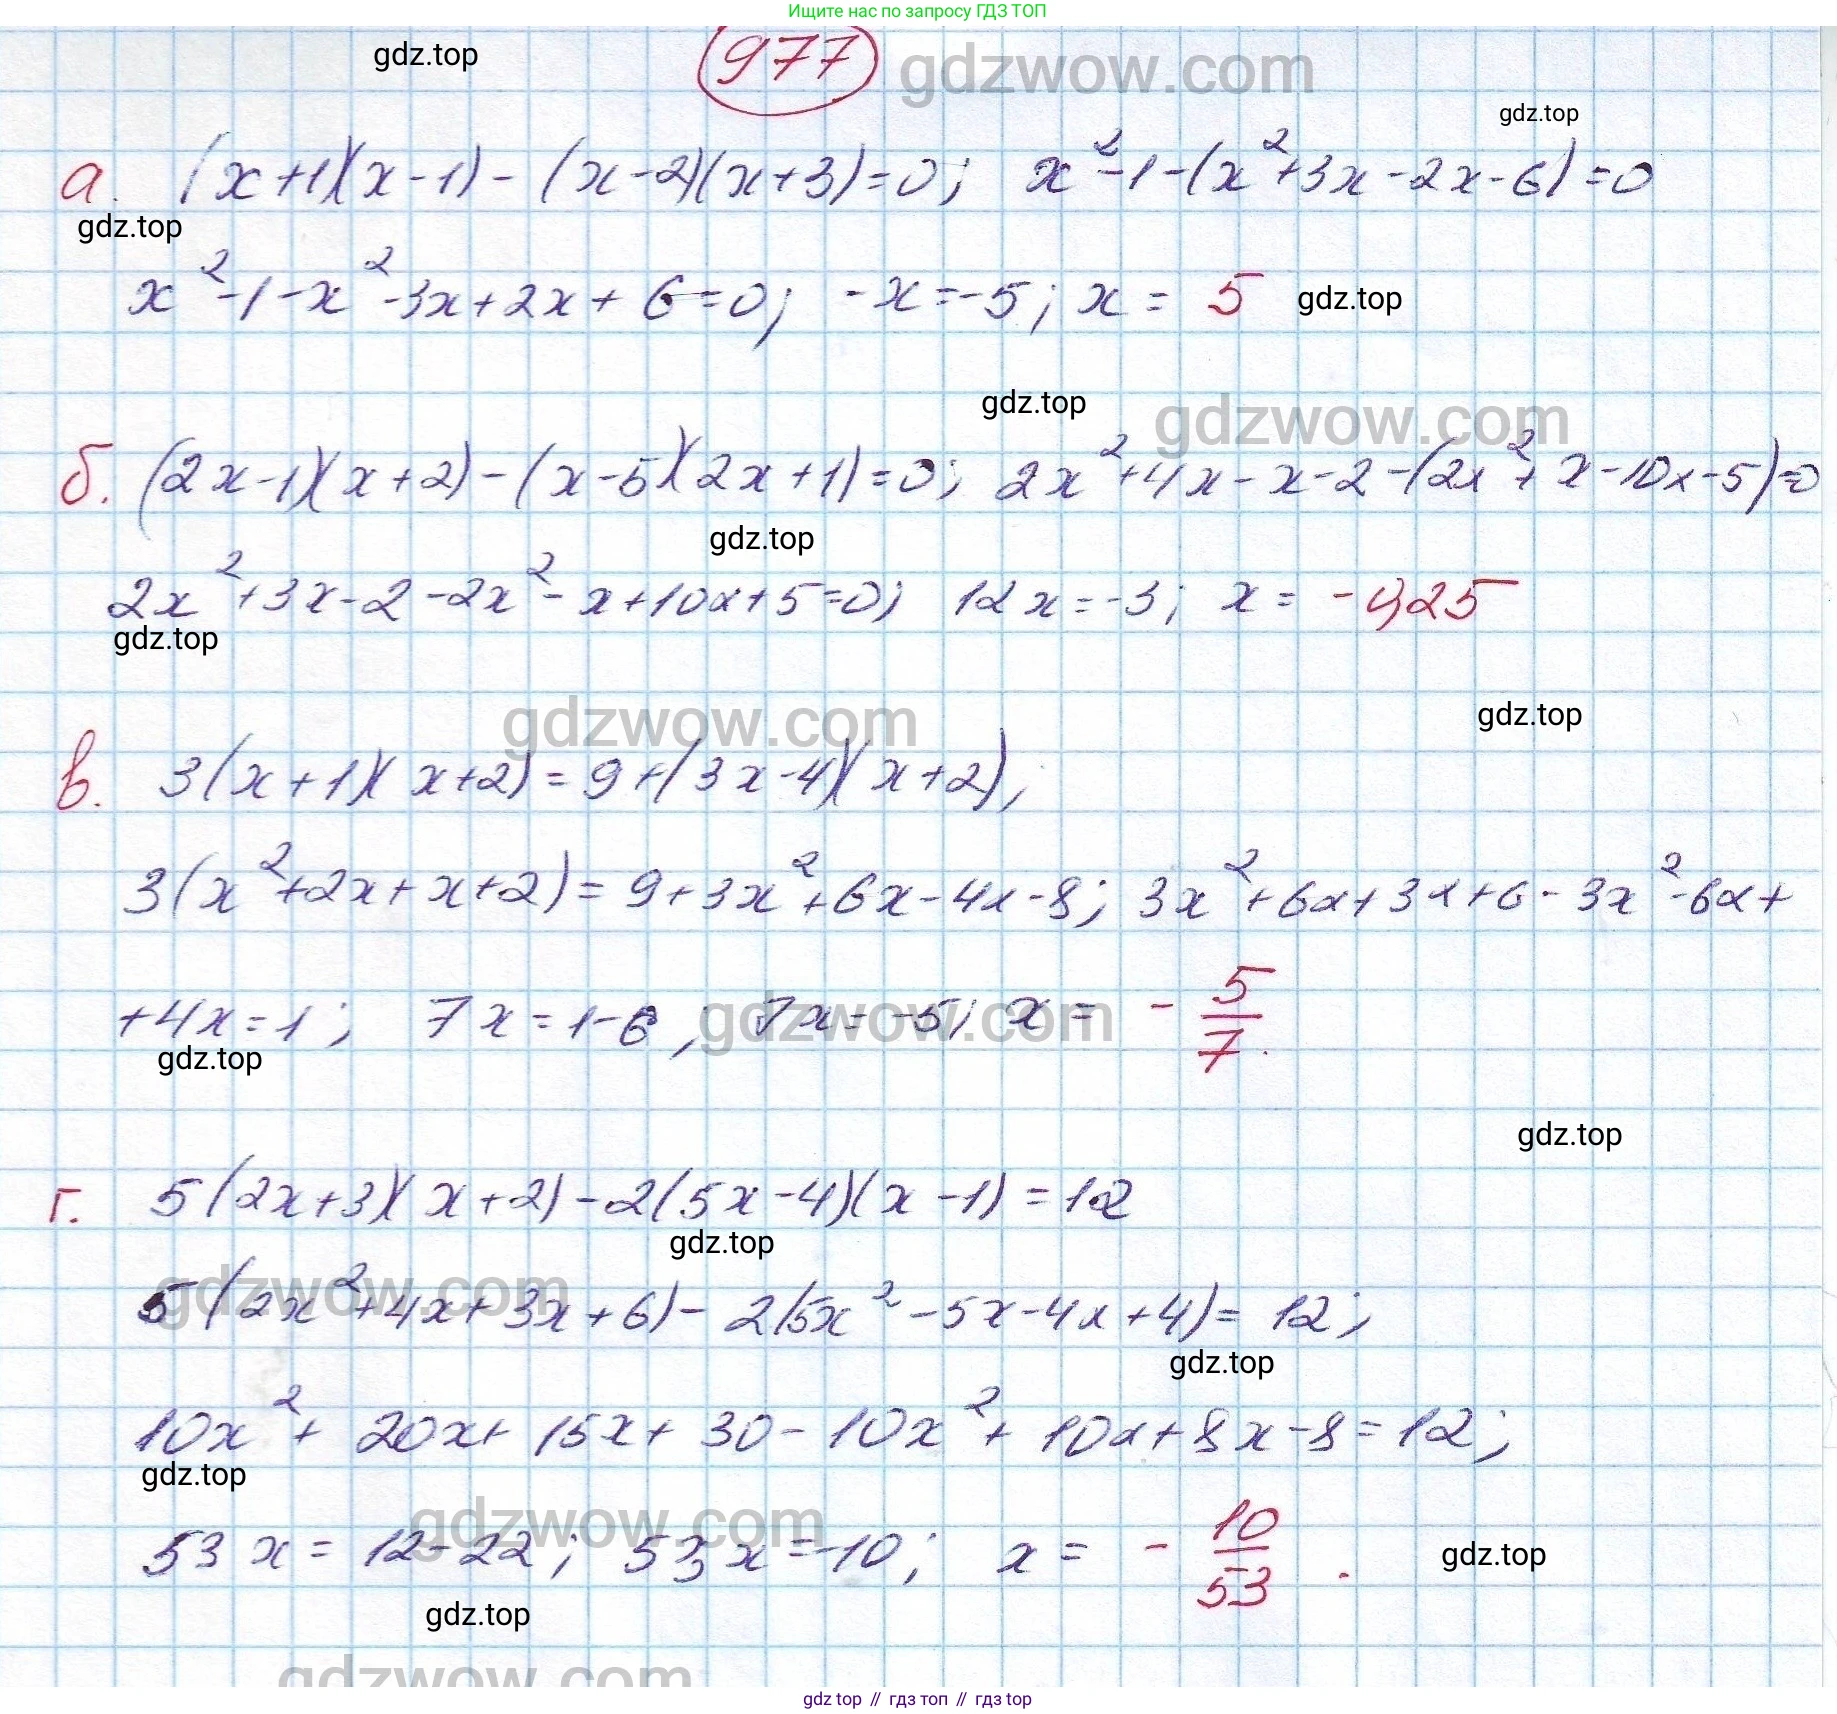 Ищите нас по запросу ГДЗ ТОП
977 gdzwow.com
gdz.top
gdz.top
а. (x+1)(x-1) - (x-2)(x+3)=0; x²-1-(x²+3x-2x-6)=0
gdz.top
x²-1-x²-3x+2x+6=0; -x=-5; x = 5 gdz.top
gdz.top gdzwow.com
б. (2x-1)(x+2)-(x-5)(2x+1)=0; 2x²+4x-x-2-(2x²+x-10x-5)=0
gdz.top
2x²+3x-2-2x²-x+10x+5=0; 12x=-3; x= -0,25
gdz.top
gdzwow.com gdz.top
в. 3(x+1)(x+2)=9+(3x-4)(x+2);
3(x²+2x+x+2)=9+3x²+6x-4x-8; 3x²+6x+3x+6-3x²-6x+
+4x=1; 7x=1-6; 7x=-5; x= -5/7.
gdzwow.com
gdz.top
gdz.top
г. 5(2x+3)(x+2)-2(5x-4)(x-1)=12
gdz.top
gdzwow.com
5(2x²+4x+3x+6)-2(5x²-5x-4x+4)=12;
gdz.top
10x²+20x+15x+30-10x²+10x+8x-8=12;
gdz.top
gdzwow.com
53x=12-22; 53x=-10; x= -10/53. gdz.top
gdz.top
gdzwow.com
gdz top // гдз топ // gdz top